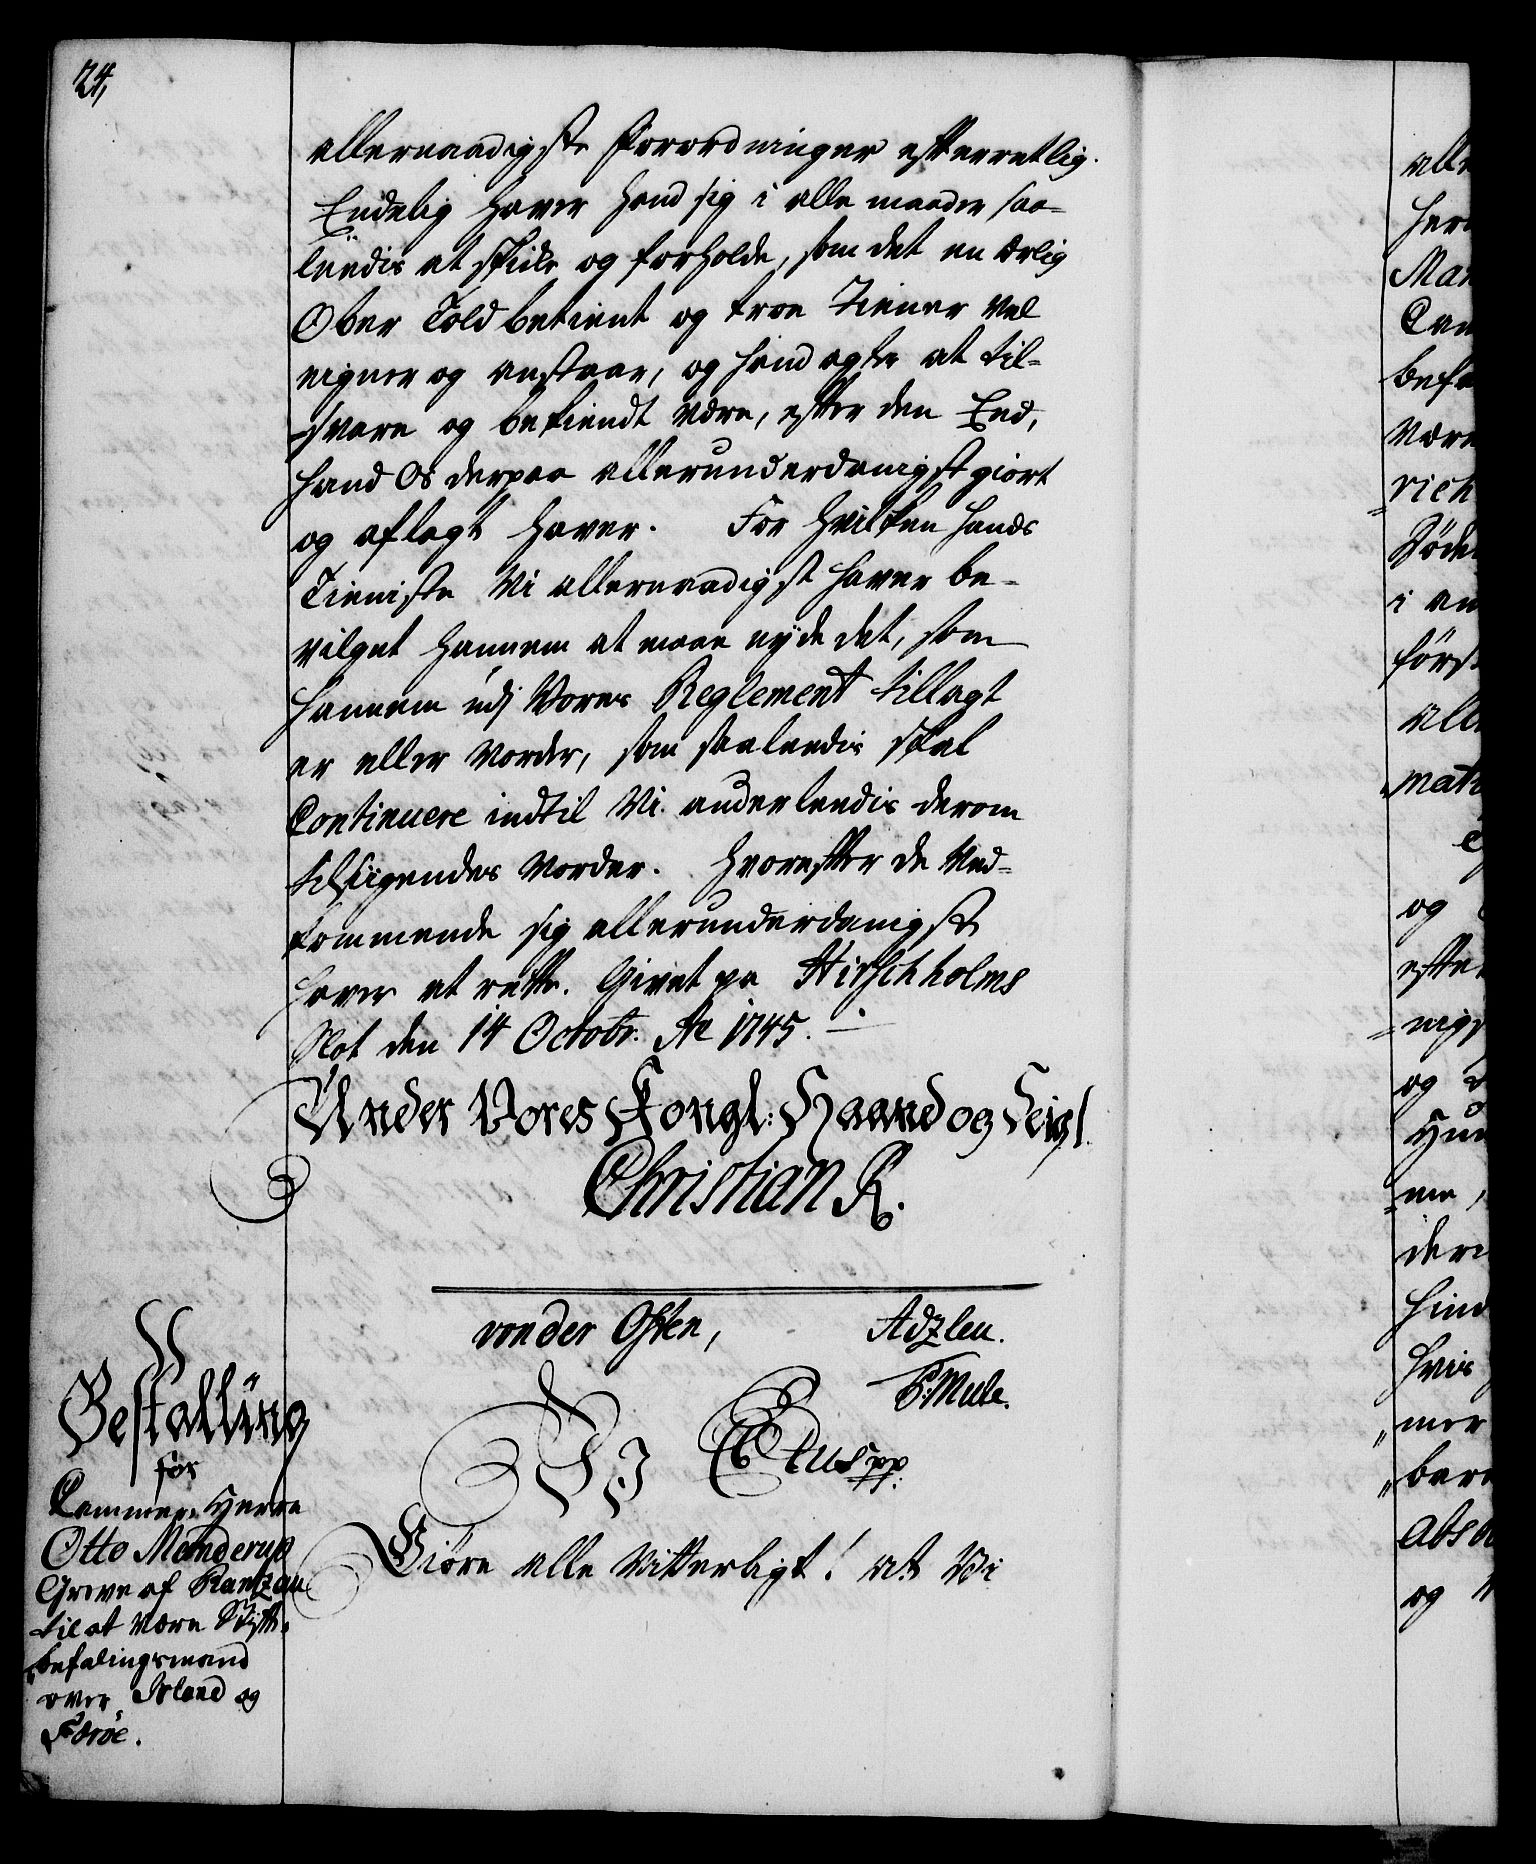 24,
allernaadigste Forordninger efterretlig.
Endelig haver hand sig i alle maader saa-
leedis at skicke og forholde, som det en ærlig
Ober Told betient og troe Tiener vel
eigner og anstaar, og hand agter at til-
svare og bekiendt være, efter den Eed,
hand Os derpaa allerunderdanigst giort
og aflagt haver. For hvilken hands
Tieniste Vi allernaadigst haver be-
vilget hannem at maae nyde det, som
hannem udj Vores Reglement tillagt
er eller vorder, som saaleedis skal
Continuere indtil Vi anderleedis derom
tilsigendes vorder. Hvorefter de Ved-
kommende sig allerunderdanigst
haver at rette. Givet pa Hirschholms
Slot den 14 Octobr. Ao 1745.
Under Vores Kongl: Haand og Seigl.
Christian R.
von der Osten, Adzleu.
P: Mule.
Bestalling
for
Cammer-Herre
Otto Manderup
Greve af Rantzau
til at være Stift-
befalingsmand
over Island og
Færöe.
Wi C6tus pp.
Giöre alle Vitterligt! at Vi
alle
Man
befa
være
rich
i an
først
alle
mati
og
efte
nigs
og
me,
deri
hind
hvis
mer
bare
abso
og